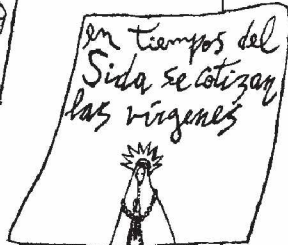 en tiempos del
Sida se cotizan
las vírgenes